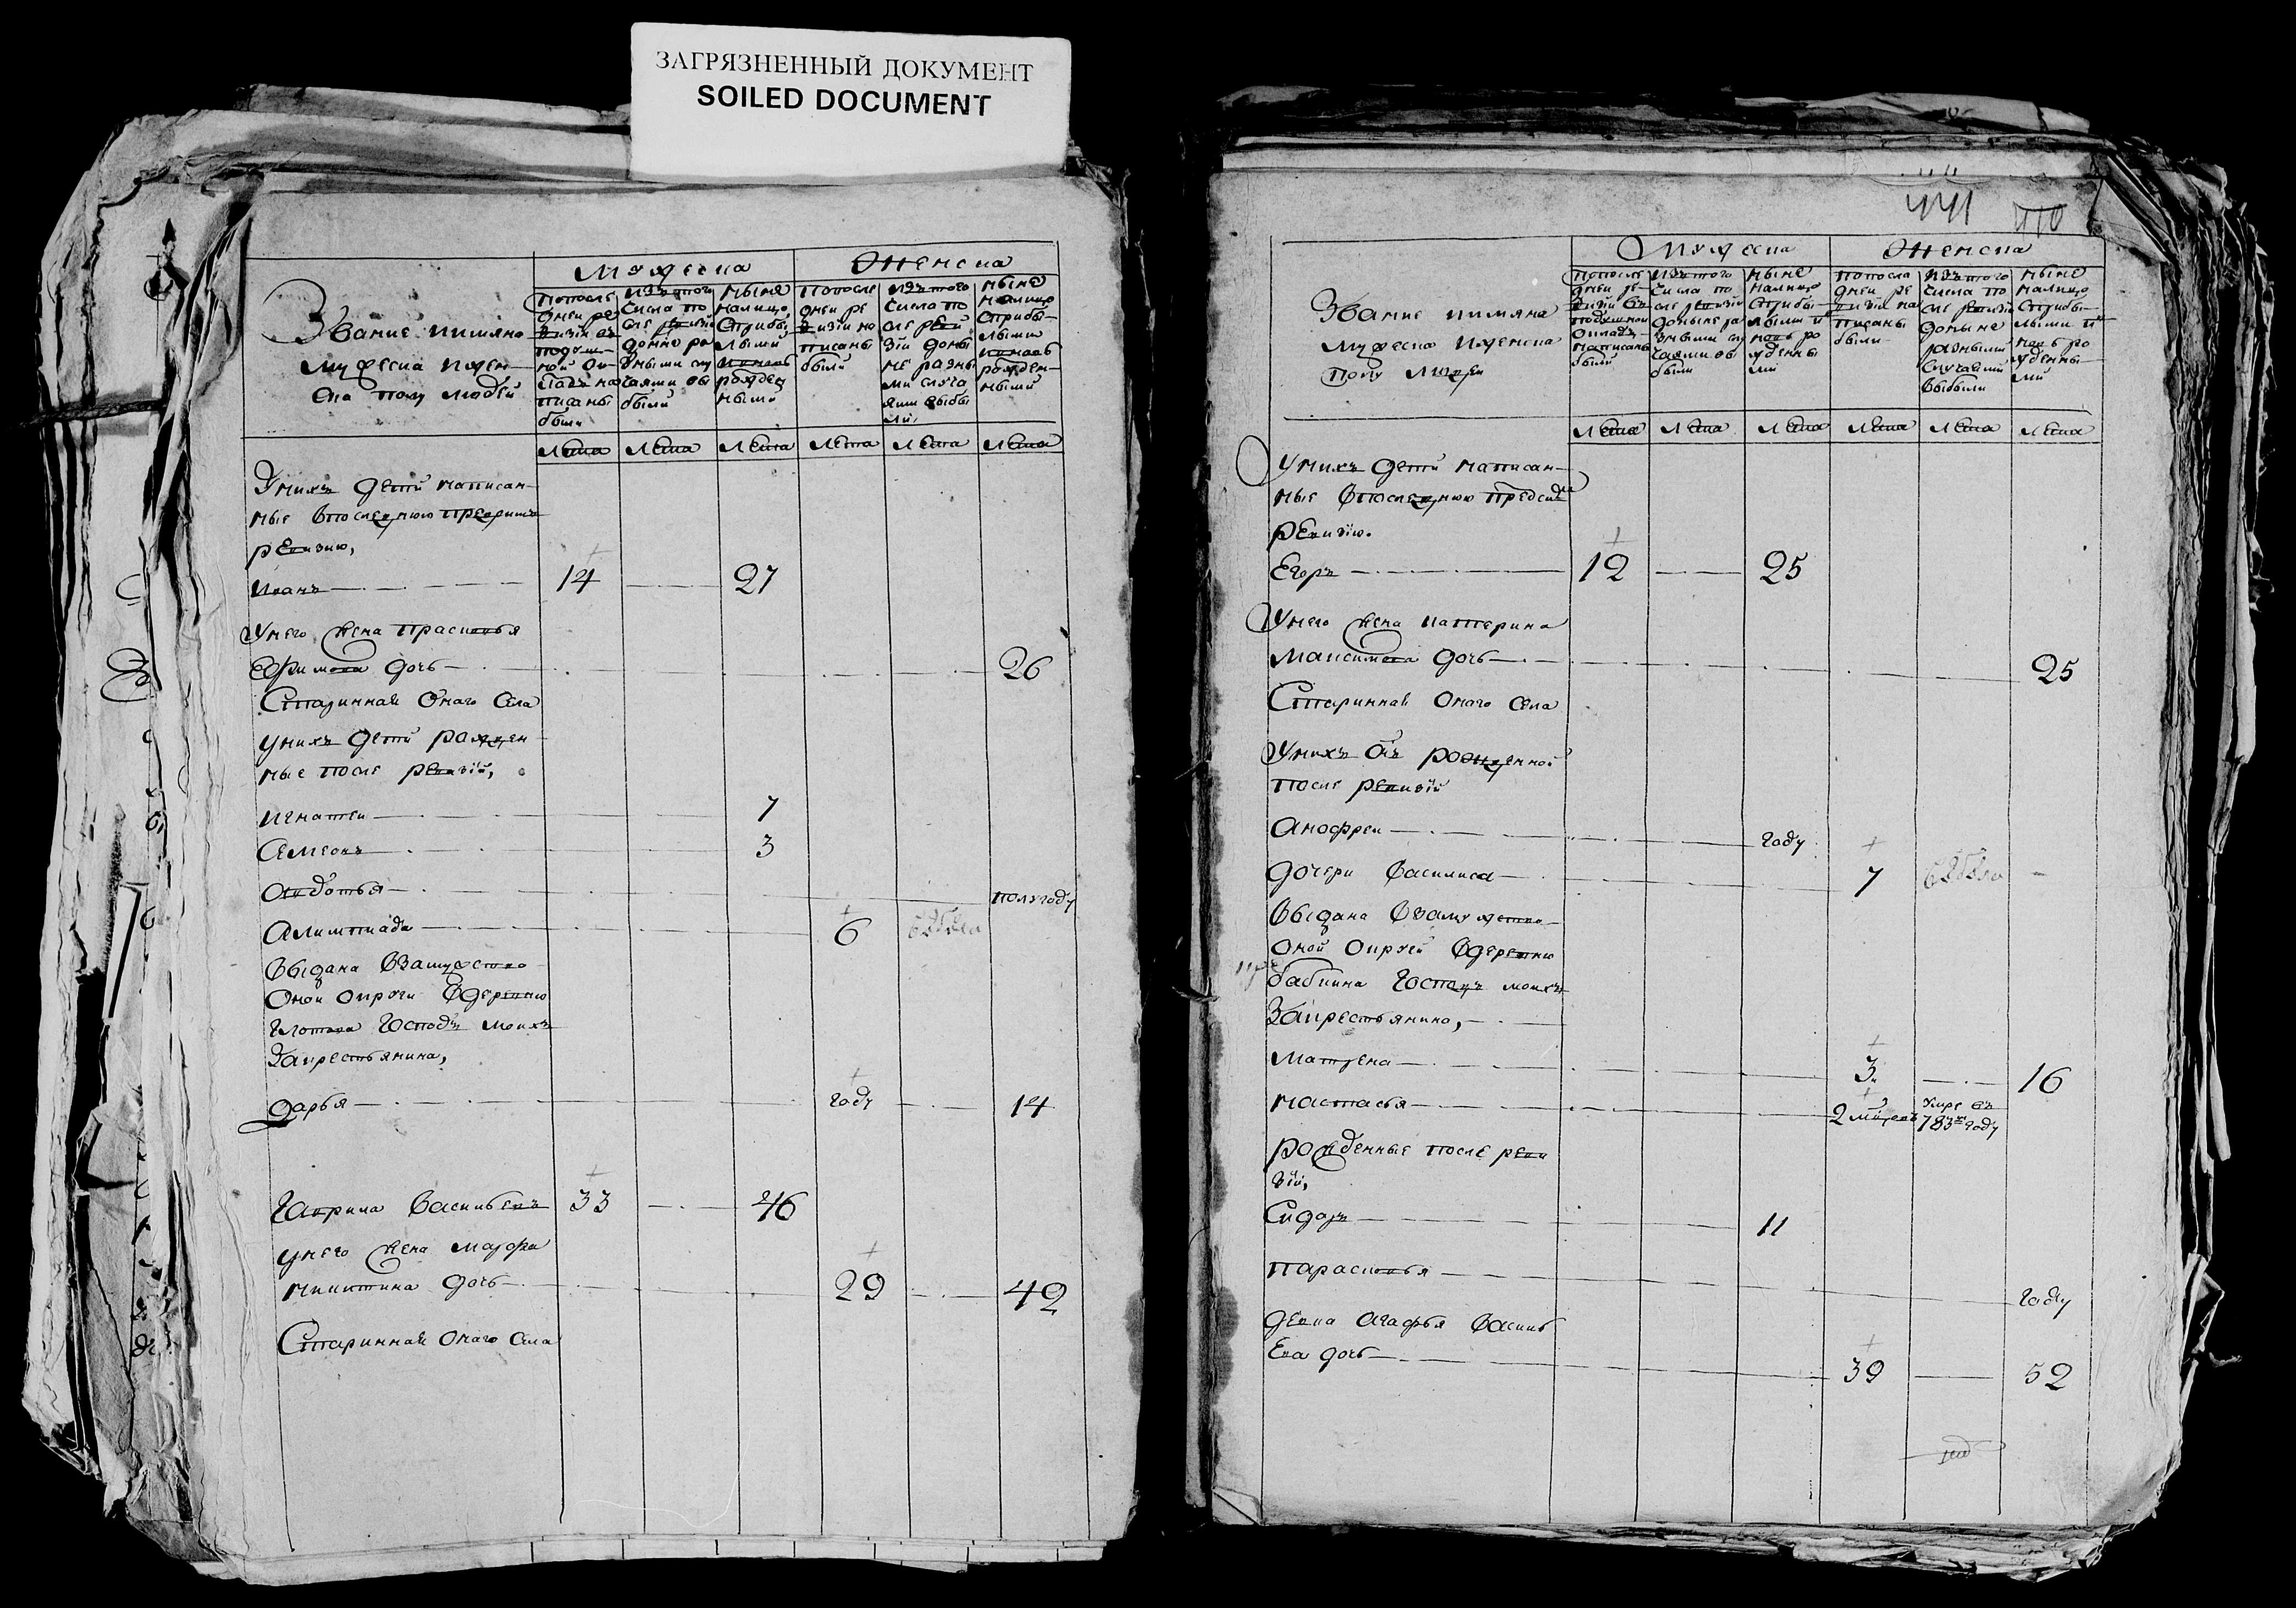 ЗАГРЯЗНЕННЫЙ ДОКУМЕНТ
SOILED DOCUMENT
Мужеска Женска
Звание имяно
мужеска ижен
ска полу людей
Попосле
дней ре
визии въ
подуш
ной ок
ладъ на
писаны
были
Изтого
числа по
сле ревизи
доныне ра
зными слу
чаями вы
были
Ныне
налицо
Сприбы
лыми
ивновь
рожден
ными
Попосле
дней ре
визии на
писаны
были
Изтого
числа по
сле реви
зіи доны
не разны
ми случа
ями выбы
ли
Ныне
налицо
Сприбы
лыми
ивновь
рожден
ными
Лета Лета Лета Лета Лета Лета
Унихъ дети написан
ные впоследнюю предпиш
ревизию,
Иванъ 14 27
Унего жена Прасковья
Ефимова дочь 26
Старинная Онаго Села
унихъ дети рожден
ные после ревизіи,
Игнатеи 7
Семеонъ 3
Овдотья полугоду
Алимпиада 6 выбыла
Выдана Взамужство
Оной округи Вдеревню
Глотова Господъ моихъ
Закрестьянина,
Дарья году 14
Гаврила Васильевъ 33 46
унего жена Марфа
Никитина дочь 29 42
Старинная Онаго Села
441 440
Мужеска Женска
Звание имяна
мужеска Иженска
Полу людей
Попосле
дней ре
визіи въ
подушной
Окладъ
написаны
были
Изтого
числа по
сле ревизіи
доныне ра
зными слу
чаями вы
были
Ныне
налицо
Сприбы
лыми и
новь ро
жденны
ми
Попосле
дней ре
визіи на
писаны
были
Изтого
числа по
сле ревизіи
доныне
разными
Случаями
выбыли
Ныне
налицо
Сприбы
лыми и
новь ро
жденны
ми
Лета Лета Лета Лета Лета Лета
Унихъ дети написан
ные Впоследнюю предъ
ревизію.
Егоръ 12 25
Унего жена Катерина
Максимова дочь 25
Старинная Онаго Села
Унихъ Сынъ рожденной
после ревизіи
Анофреи году
дочери Василиса 7 выбыла
Выдана Взамужство
Оной Округи Вдеревню
бабкина Господъ моихъ
Закрестьянина,
Матрена 3 16
Настасья 2 месецовъ Умре въ 783м году
рожденные после реви
зіи,
Сидоръ 11
Парасковья году
девка Агафья Василь
Ева дочь 39 52